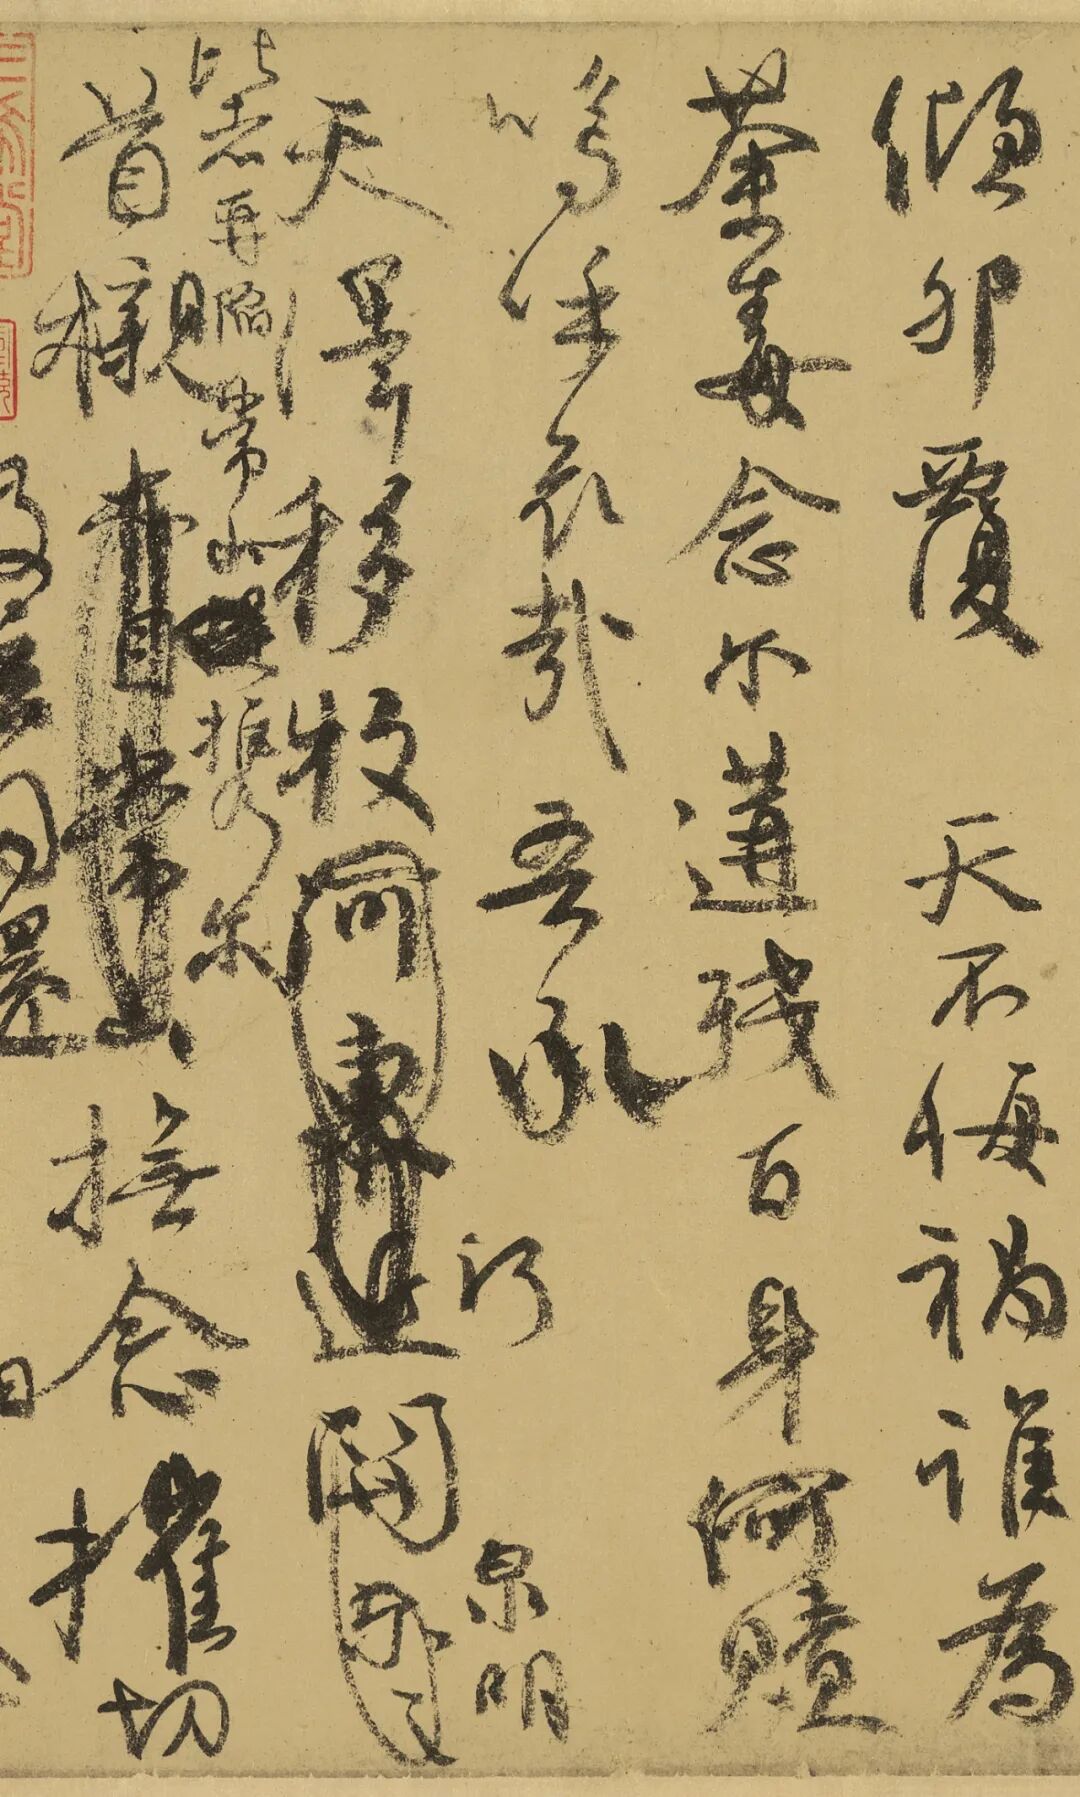 傾卵覆 天不悔禍誰為
荼毒念尔遘殘百身何贖
嗚呼哀哉吾承 河 泉明
天澤移牧 關
比者再陷常山 携尔
首櫬 亦自常山 撫念摧切
及茲同還